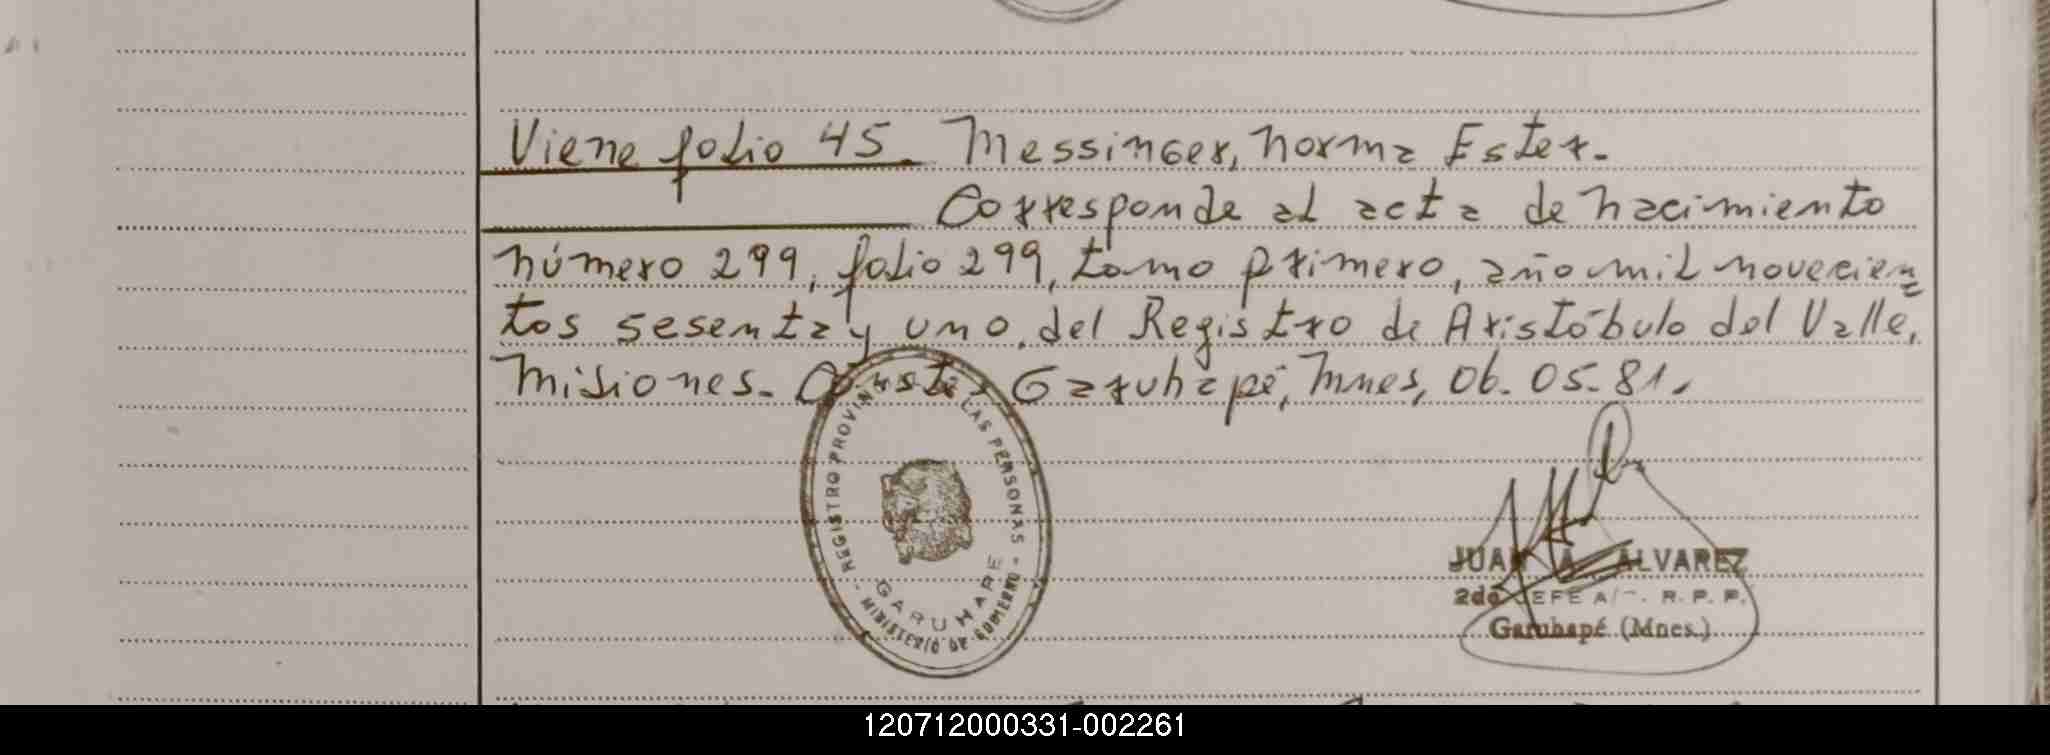 Viene folio 45. Messinger, Norma Ester.
Corresponde al acta de nacimiento
número 299, folio 299, tomo primero, año mil novecien=
tos sesenta y uno, del Registro de Aristóbulo del Valle,
Misiones. Conste, Garuhapé, Mnes, 06.05.81.
REGISTRO PROVINCIAL DE LAS PERSONAS - MINISTERIO DE GOBIERNO -
GARUHAPE
JUAN A. ALVAREZ
2do JEFE A/ . R. P. P.
Garuhapé (Mnes.)
120712000331-002261